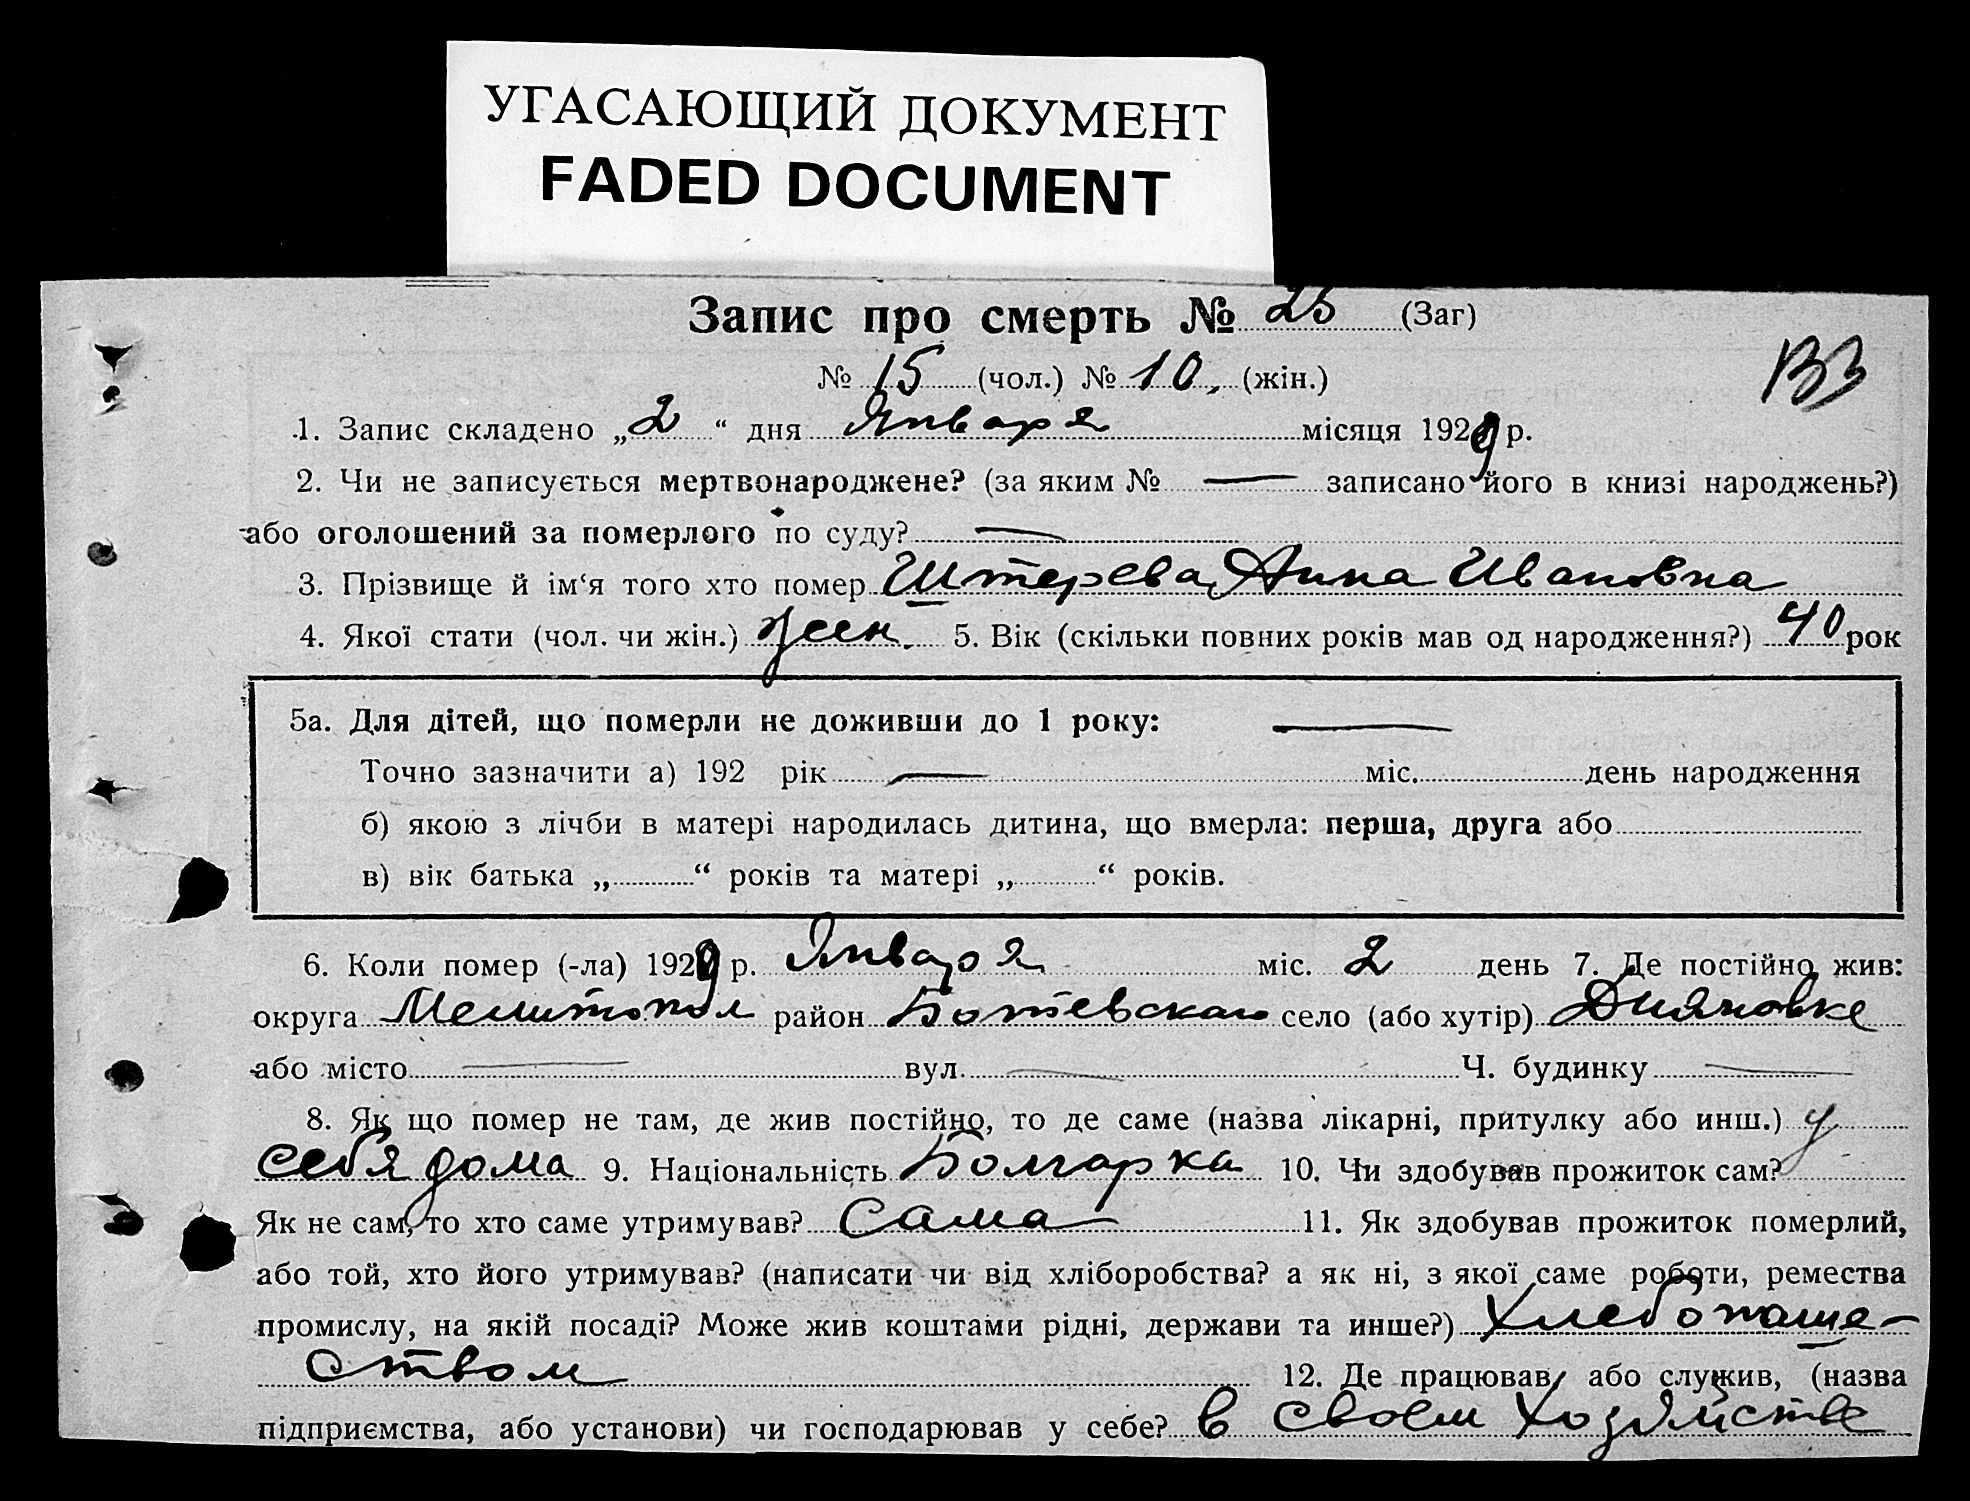 УГАСАЮЩИЙ ДОКУМЕНТ
FADED DOCUMENT
Запис про смерть № 25 (Заг)
№ 15 (чол.) № 10. (жін.)
1. Запис складено „2“ дня Января місяця 1929 р.
2. Чи не записується мертвонароджене? (за яким № — записано його в книзі народжень?)
або оголошений за померлого по суду? —
3. Прізвище й ім‘я того хто помер Штерева Анна Ивановна
4. Якої стати (чол. чи жін.) жен. 5. Вік (скільки повних років мав од народження?) 40 рок
5а. Для дітей, що померли не доживши до 1 року: —
Точно зазначити а) 192 рік — міс. день народження
б) якою з лічби в матері народилась дитина, що вмерла: перша, друга або
в) вік батька „ “ років та матері „ “ років.
6. Коли помер (-ла) 1929 р. Января міс. 2 день 7. Де постійно жив:
округа Мелитопол район Ботевскаго село (або хутір)
або місто — вул. — Ч. будинку —
8. Як що помер не там, де жив постійно, то де саме (назва лікарні, притулку або инш.) у
себя дома 9. Національність Болгарка 10. Чи здобував прожиток сам?
Як не сам, то хто саме утримував? Сама 11. Як здобував прожиток померлий,
або той, хто його утримував? (написати чи від хліборобства? а як ні, з якої саме роботи, ремества
промислу, на якій посаді? Може жив коштами рідні, держави та инше?) Хлебопаше-
ством 12. Де працював, або служив, (назва
підприємства, або установи) чи господарював у себе? в своем хозяйстве